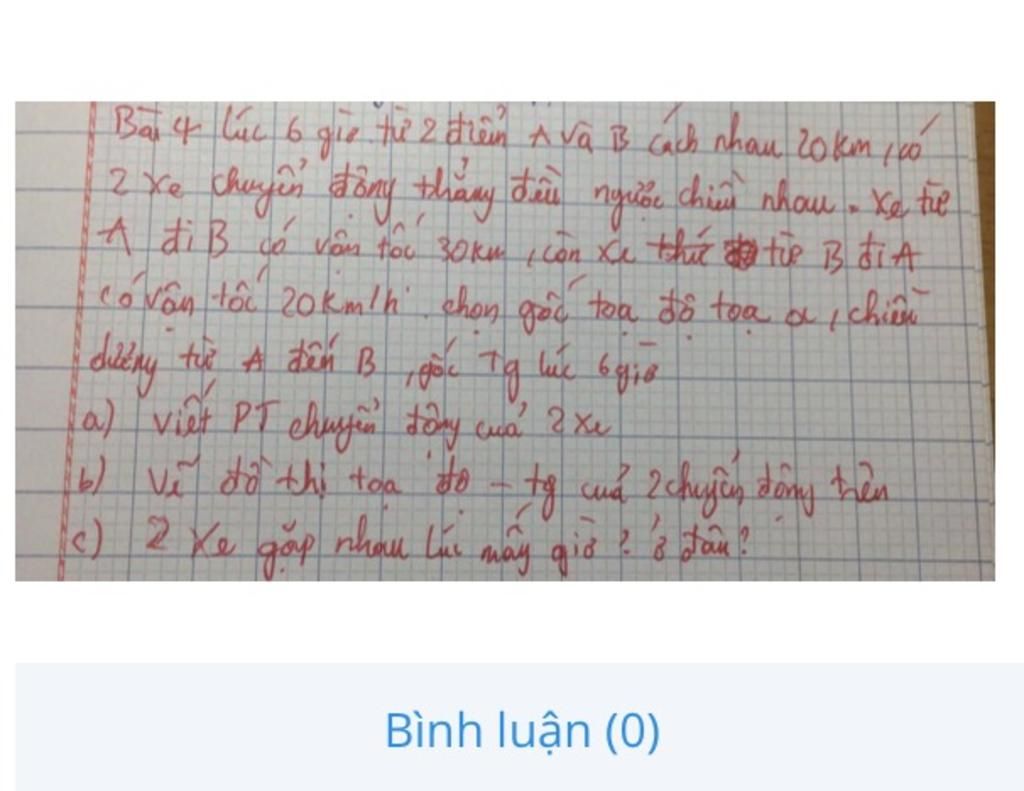 Bài 4 lúc 6 giờ từ 2 điểm A và B cách nhau 20km, có
2 xe chuyển động thẳng đều ngược chiều nhau. Xe từ
A đi B có vận tốc 30km, còn xe thứ từ B đi A
có vận tốc 20km/h. chọn gốc toạ độ tọa α, chiều
dương từ A đến B, gốc tg lúc 6 giờ
a) viết PT chuyển động của 2 xe
b) Vẽ đồ thị toạ độ - tg của 2 chuyển động trên
c) 2 Xe gặp nhau lúc mấy giờ? ở đâu?
Bình luận (0)